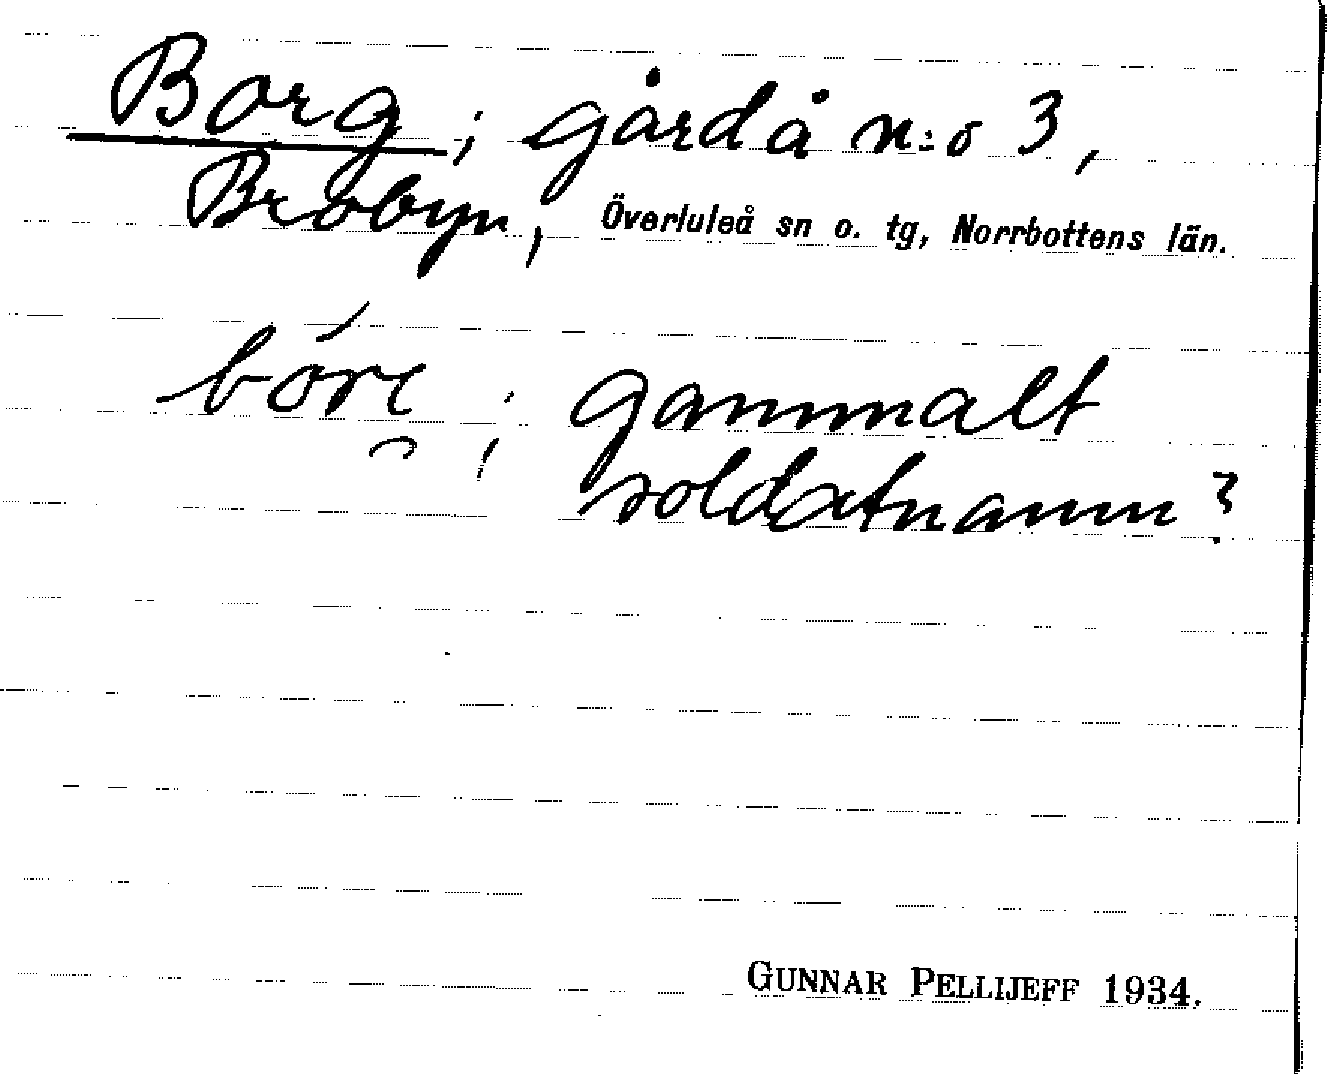 Borg; gård å n:o 3,
Brobyn, Överluleå sn o. tg, Norrbottens län.
bóre̯; gammalt
soldatnamn?
GUNNAR PELLIJEFF 1934.